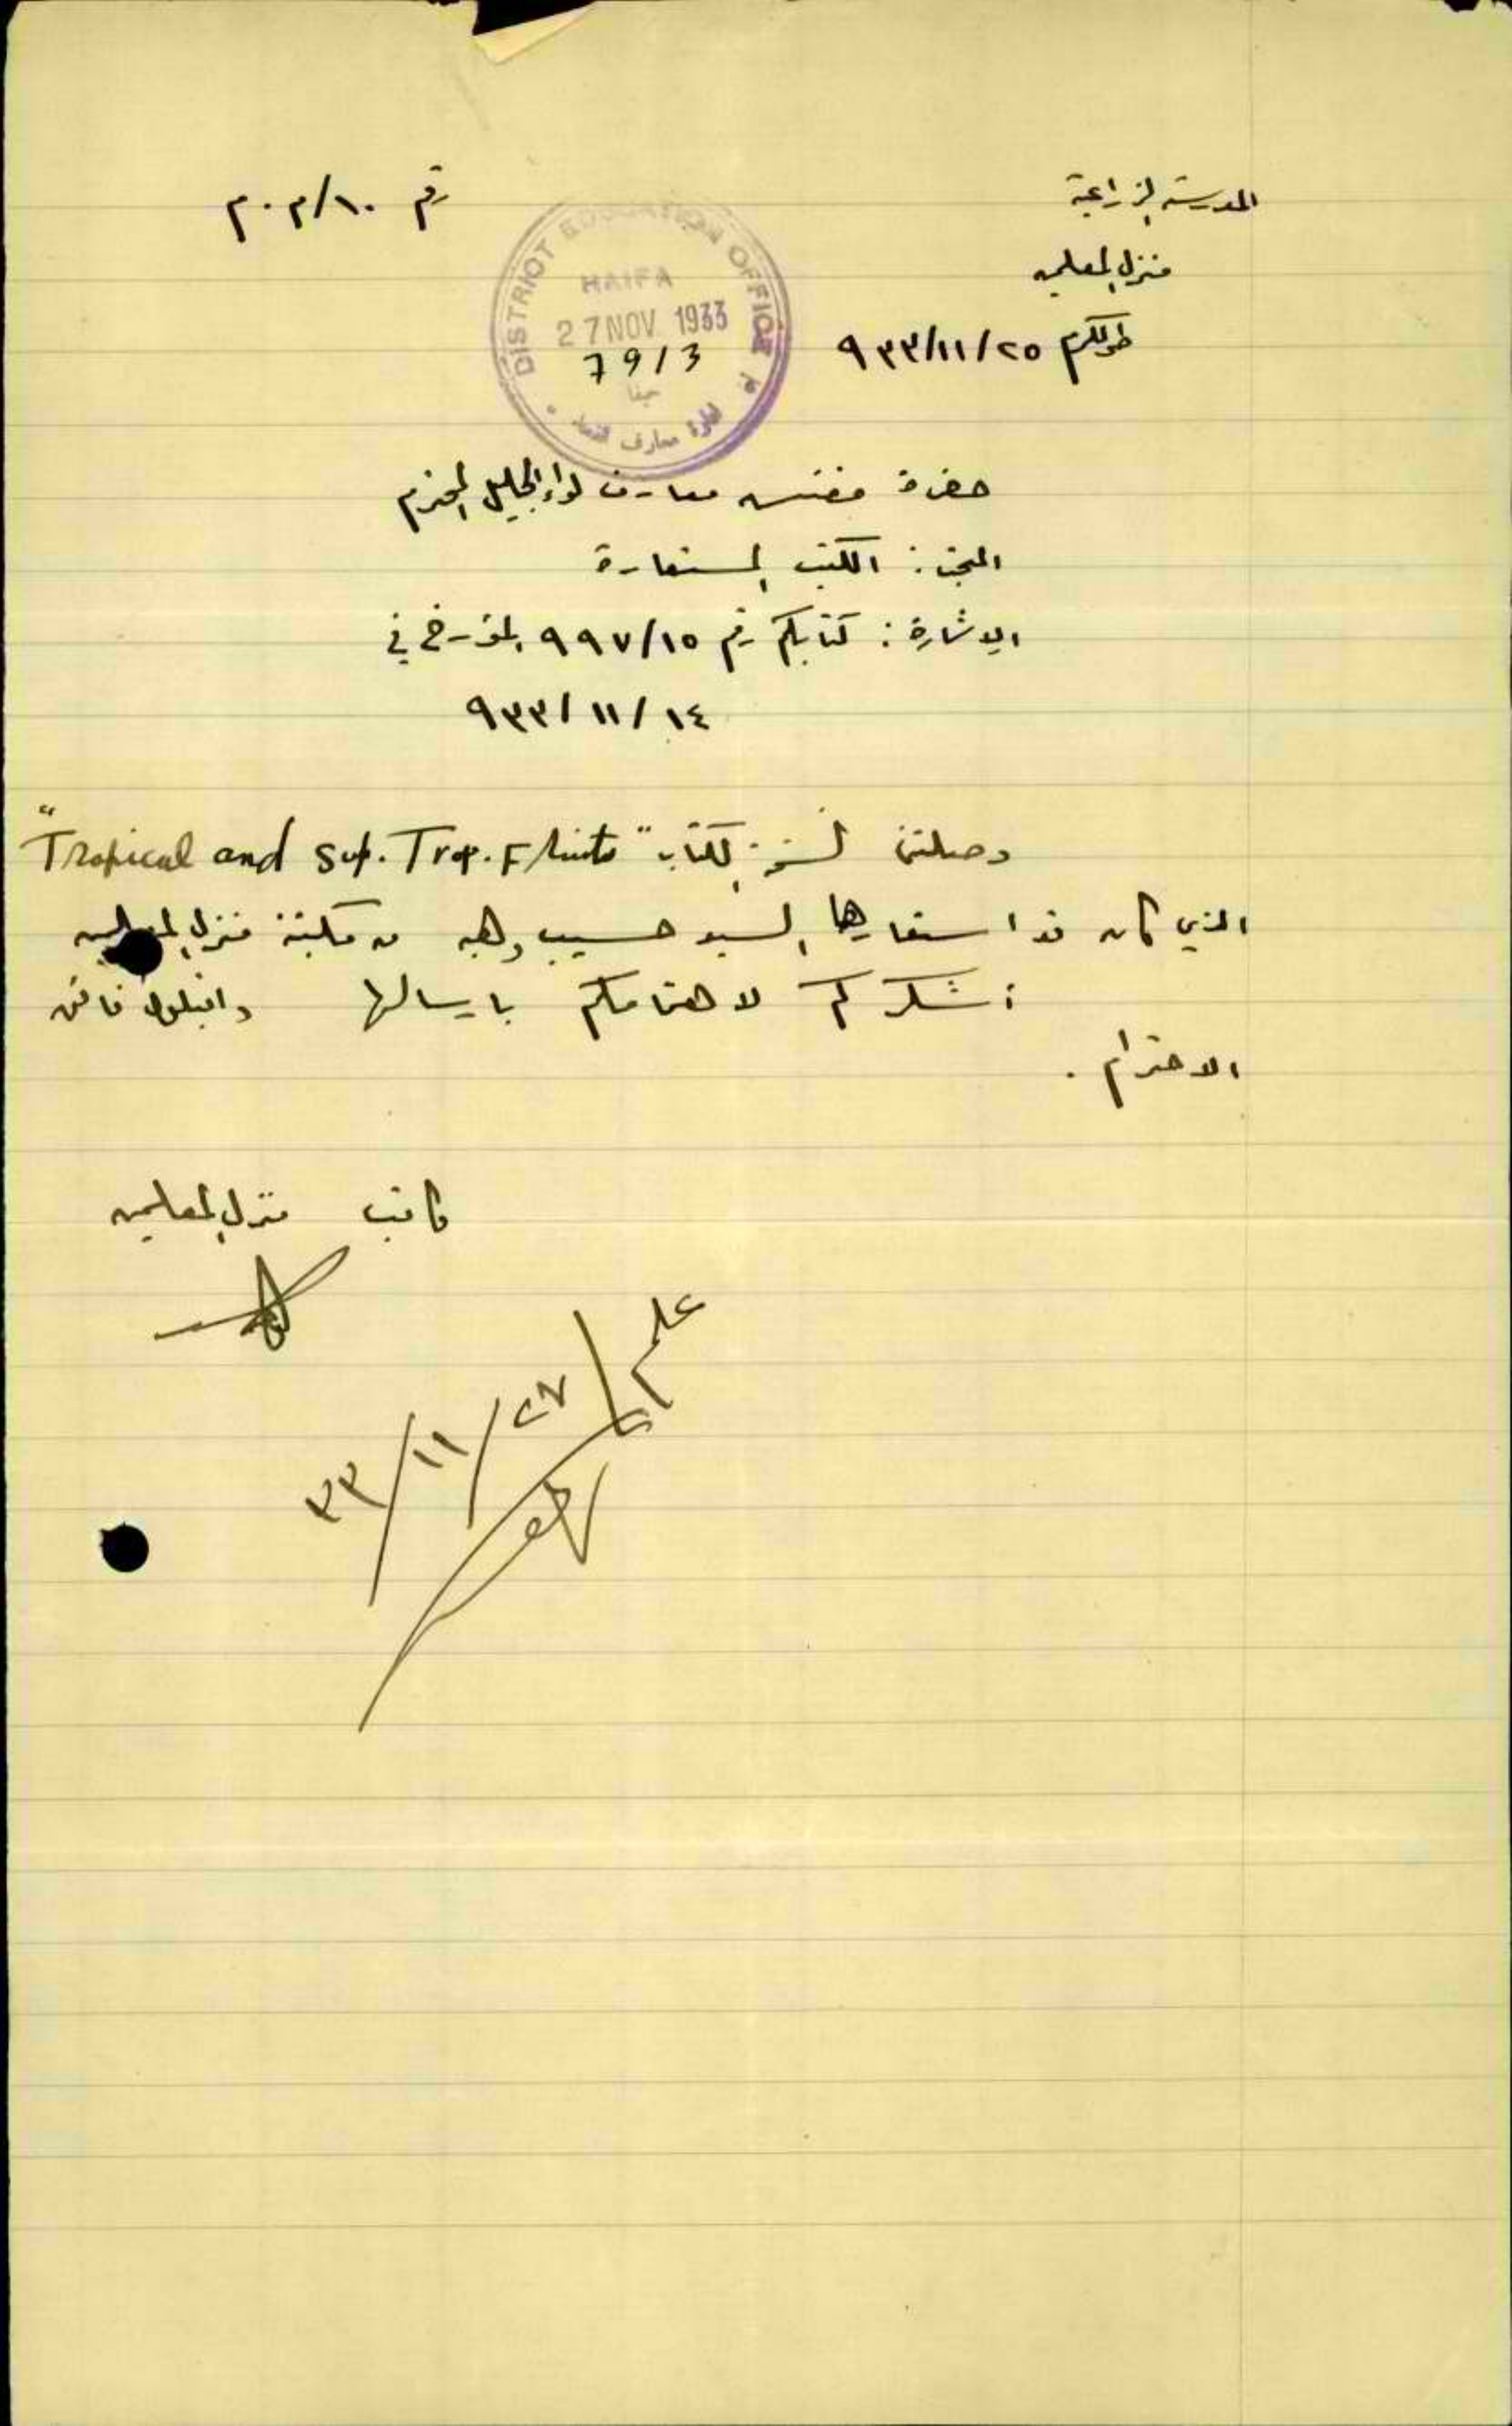 المدرسة الزراعية
رقم م٠م/١٠
منزل المعلمين
طولكرم ٢٥/١١/٩٣٣
DISTRICT EDUCATION OFFICE
HAIFA
27 NOV 1933
7913
حيفا
ادارة معارف
حضرة مفتش معارف لواء الجليل المحترم
المبحث : الكتب المستعارة
الاشارة : كتابكم رقم ٩٩٧/١٥ المؤرخ في
١٤/١١/٩٣٣
وصلتني نسخة الكتاب "Tropical and Sup. Trop. Fruits"
الذي كان قد استعارها السيد حسيب وهبه من مكتبة منزل المعلمين
أشكركم لاهتمامكم بارسالها واقبلوا فائق
الاحترام .
كاتب منزل المعلمين
علم
٢٧/١١/٣٣